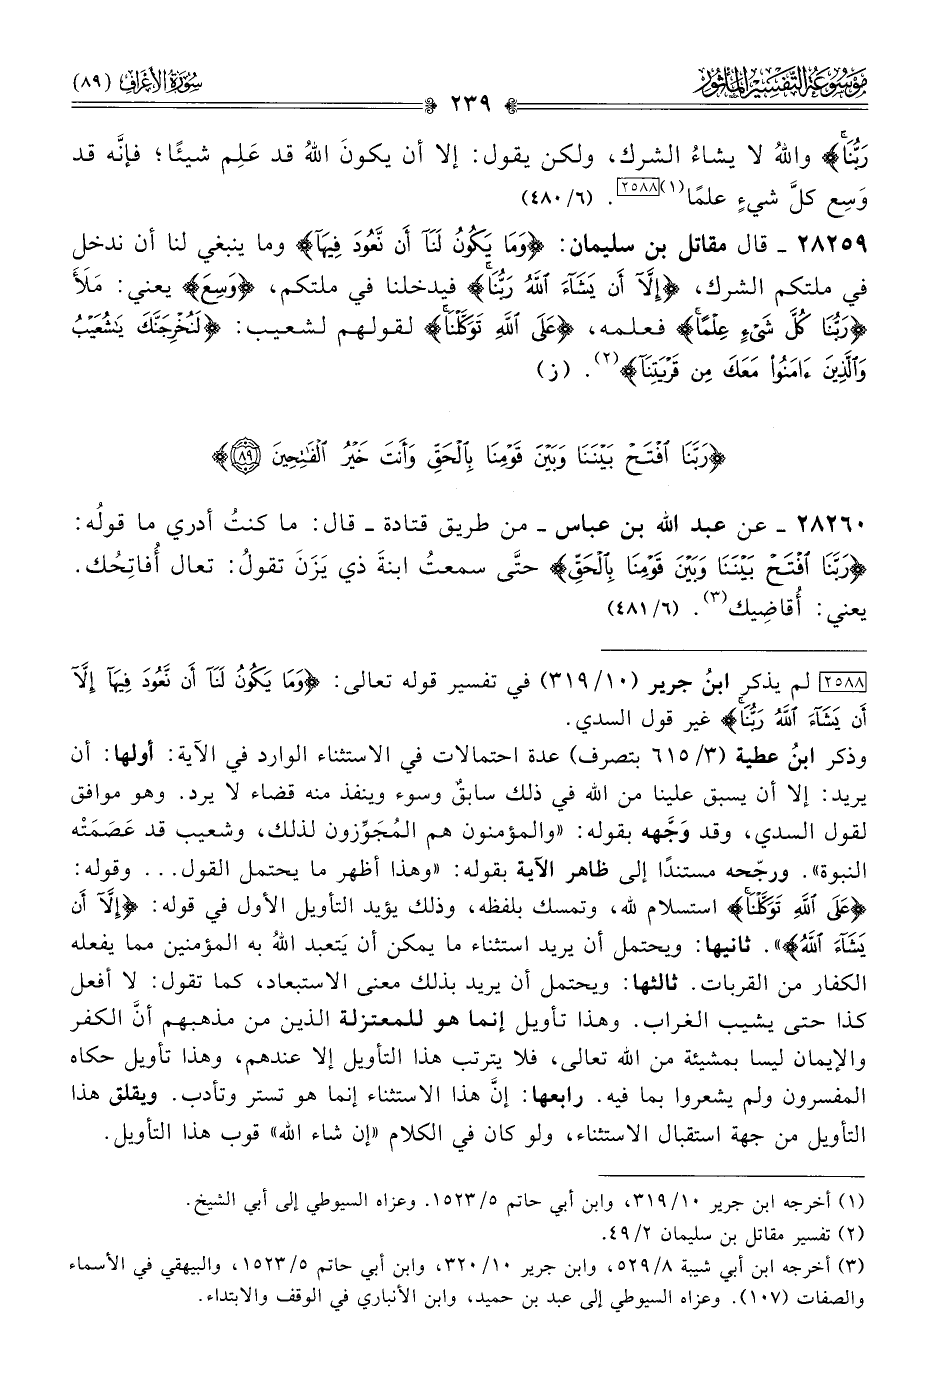 مَوْسُوعَةُ التَّفْسِيرِ المَأْثُورِ
سُورَةُ الأَعْرَافِ (٨٩)
٢٣٩
رَبُّنَاۚ﴾ واللهُ لا يشاءُ الشرك، ولكن يقول: إلا أن يكونَ اللهُ قد عَلِم شيئًا؛ فإنَّه قد
وَسِع كلَّ شيءٍ علمًا(١)[٢٥٨٨]. (٤٨٠/٦)
٢٨٢٥٩ ـ قال مقاتل بن سليمان: ﴿وَمَا يَكُونُ لَنَآ أَن نَّعُودَ فِيهَآ﴾ وما ينبغي لنا أن ندخل
في ملتكم الشرك، ﴿إِلَّآ أَن يَشَآءَ ٱللَّهُ رَبُّنَاۚ﴾ فيدخلنا في ملتكم، ﴿وَسِعَ﴾ يعني: مَلَأَ
﴿رَبُّنَا كُلَّ شَىْءٍ عِلْمًاۚ﴾ فعلمه، ﴿عَلَى ٱللَّهِ تَوَكَّلْنَاۚ﴾ لقولهم لشعيب: ﴿لَنُخْرِجَنَّكَ يَٰشُعَيْبُ
وَٱلَّذِينَ ءَامَنُوا۟ مَعَكَ مِن قَرْيَتِنَآ﴾(٢). (ز)
﴿رَبَّنَا ٱفْتَحْ بَيْنَنَا وَبَيْنَ قَوْمِنَا بِٱلْحَقِّ وَأَنتَ خَيْرُ ٱلْفَٰتِحِينَ ٨٩﴾
٢٨٢٦٠ ـ عن عبد الله بن عباس ـ من طريق قتادة ـ قال: ما كنتُ أدري ما قولُه:
﴿رَبَّنَا ٱفْتَحْ بَيْنَنَا وَبَيْنَ قَوْمِنَا بِٱلْحَقِّ﴾ حتَّى سمعتُ ابنةَ ذي يَزَنَ تقولُ: تعال أُفاتِحُك.
يعني: أُقاضِيك(٣). (٤٨١/٦)
[٢٥٨٨] لم يذكر ابنُ جرير (٣١٩/١٠) في تفسير قوله تعالى: ﴿وَمَا يَكُونُ لَنَآ أَن نَّعُودَ فِيهَآ إِلَّآ
أَن يَشَآءَ ٱللَّهُ رَبُّنَاۚ﴾ غير قول السدي.
وذكر ابنُ عطية (٦١٥/٣ بتصرف) عدة احتمالات في الاستثناء الوارد في الآية: أولها: أن
يريد: إلا أن يسبق علينا من الله في ذلك سابقٌ وسوء وينفذ منه قضاء لا يرد. وهو موافق
لقول السدي، وقد وَجَّهه بقوله: «والمؤمنون هم المُجَوِّزون لذلك، وشعيب قد عَصَمَتْه
النبوة». ورجّحه مستندًا إلى ظاهر الآية بقوله: «وهذا أظهر ما يحتمل القول... وقوله:
﴿عَلَى ٱللَّهِ تَوَكَّلْنَاۚ﴾ استسلام لله، وتمسك بلفظه، وذلك يؤيد التأويل الأول في قوله: ﴿إِلَّآ أَن
يَشَآءَ ٱللَّهُ﴾». ثانيها: ويحتمل أن يريد استثناء ما يمكن أن يَتعبد اللهُ به المؤمنين مما يفعله
الكفار من القربات. ثالثها: ويحتمل أن يريد بذلك معنى الاستبعاد، كما تقول: لا أفعل
كذا حتى يشيب الغراب. وهذا تأويل إنما هو للمعتزلة الذين من مذهبهم أنَّ الكفر
والإيمان ليسا بمشيئة من الله تعالى، فلا يترتب هذا التأويل إلا عندهم، وهذا تأويل حكاه
المفسرون ولم يشعروا بما فيه. رابعها: إنَّ هذا الاستثناء إنما هو تستر وتأدب. ويقلق هذا
التأويل من جهة استقبال الاستثناء، ولو كان في الكلام «إن شاء الله» قوب هذا التأويل.
(١) أخرجه ابن جرير ٣١٩/١٠، وابن أبي حاتم ١٥٢٣/٥. وعزاه السيوطي إلى أبي الشيخ.
(٢) تفسير مقاتل بن سليمان ٤٩/٢.
(٣) أخرجه ابن أبي شيبة ٥٢٩/٨، وابن جرير ٣٢٠/١٠، وابن أبي حاتم ١٥٢٣/٥، والبيهقي في الأسماء
والصفات (١٠٧). وعزاه السيوطي إلى عبد بن حميد، وابن الأنباري في الوقف والابتداء.